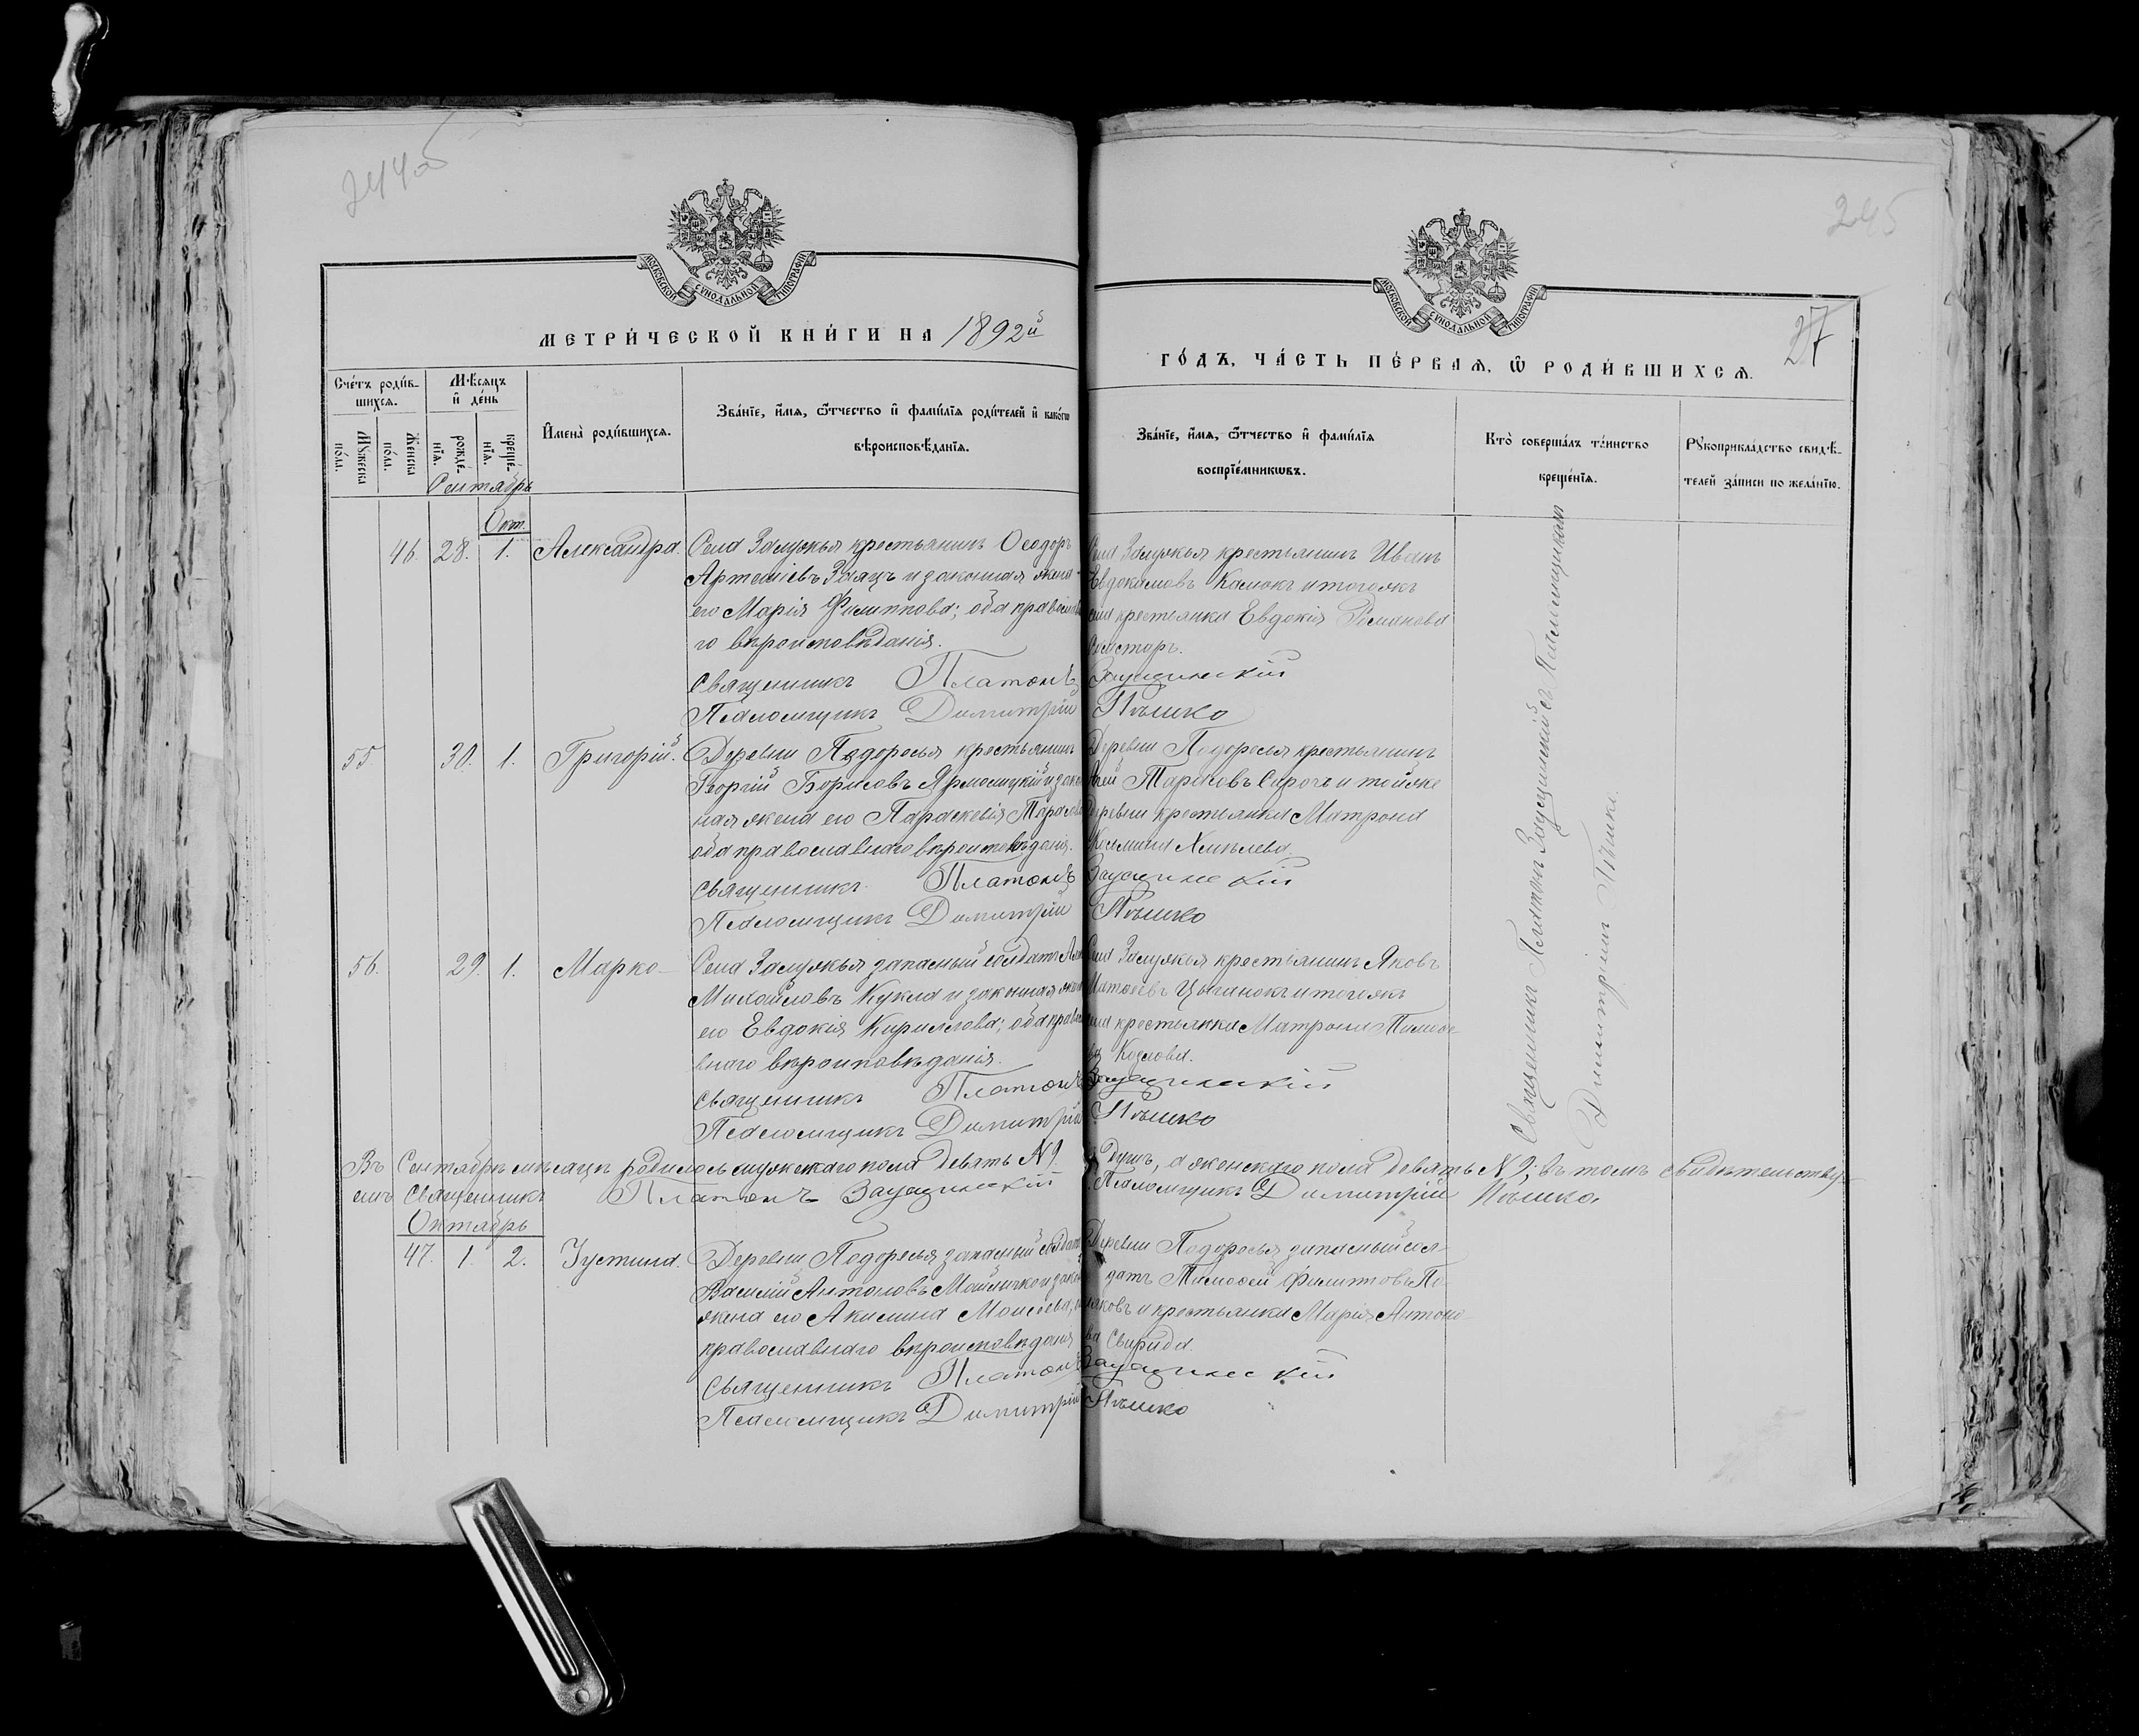 244об
245
МОСКОВСКОЙ СУНОДАЛЬНОЙ ТИПОГРАФІИ
МОСКОВСКОЙ СУНОДАЛЬНОЙ ТИПОГРАФІИ
МЕТРИ́ЧЕСКОЙ КНИ́ГИ НА 1892й
ГО́ДЪ, ЧА́СТЬ ПЕ́РВАЯ, Ѿ РОДИ́ВШИХСЯ.
27
Сче́тъ роди́в-
шихся.
Мѣсяцъ
и҆ де́нь
Мꙋжеска
по́ла.
Женска
по́ла.
рожде́-
нїя.
креще́-
нїя.
И҆мена̀ роди́вшихся.
Зва́нїе, и҆́мя, ѻ҆́тчество и҆ фами́лїя роди́телей и҆ како́гѡ
вѣроисповѣ́данїя.
Зва́нїе, и҆́мя, ѻ҆́тчество и҆ фами́лїя
воспрїе́мникѡвъ.
Кто̀ соверша́лъ та́инство
креще́нїя.
Рꙋкоприкла́дство свидѣ́-
телей за́писи по жела́нїю.
Сентябрь
Окт.
46. 28. 1. Александра.
Села Залужья крестьянинъ Ѳеодоръ
Артеміевъ Заяцъ и законная жена
его Марія Филиппова; оба православна
го вѣроисповѣданія.
Священникъ Платонъ
Псаломщикъ Димитрій
Села Залужья крестьянинъ Иванъ
Евдокимовъ Каток и тогожъ
села крестьянка Евдокія Романова
Священникъ Платонъ Заусцинскій съ Псаломщикомъ
Димитріемъ Пѣшко.
Заусцинскій
Пѣшко
55 30. 1. Григорій.
Деревни Подоресья крестьянинъ
Георгій Борисовъ Ярмолицкій и закон
ная жена его Параскевія Тарасова
оба православнаго вѣроисповѣданія.
Священникъ Платонъ
Псаломщикъ Димитрій
Деревни Подоресья крестьянинъ
Тарасовъ Сирочъ и тойже
деревни крестьянка Матрона
Козьмина Хмѣлева.
Заусцинскій
Пѣшко
56. 29. 1. Марко
Села Залужья запасный солдатъ
Михайловъ Кукла и законная жена
его Евдокія Кириллова; оба правосла
внаго вѣроисповѣданія.
Священникъ Платонъ
Псаломщикъ Димитрій
Села Залужья крестьянинъ Яковъ
Матѳеевъ Цыганокъ и тогожъ
села крестьянка Матрона Тимоѳе
ва Козлова.
Заусцинскій
Пѣшко
Въ Сентябрѣ мѣсяцѣ родилось мужескаго пола девять №9 душъ, а женскаго пола девять №9; въ томъ свидѣтельству
емъ Священникъ Платонъ Заусцинскій Псаломщикъ Димитрій Пѣшко
Октябрь
47. 1. 2. Іустина.
Деревни Подоресья запасный солдатъ
Василій Антоновъ Мойсичко и закон
жена его Акилина Моисеева,
православнаго вѣроисповѣданія
Священникъ Платонъ
Псаломщикъ Димитрій
Деревни Подоресья запасный сол-
датъ Тимоѳей Филиповъ По
ляковъ и крестьянка Марія Антоно
ва Свирида.
Заусцинскій
Пѣшко